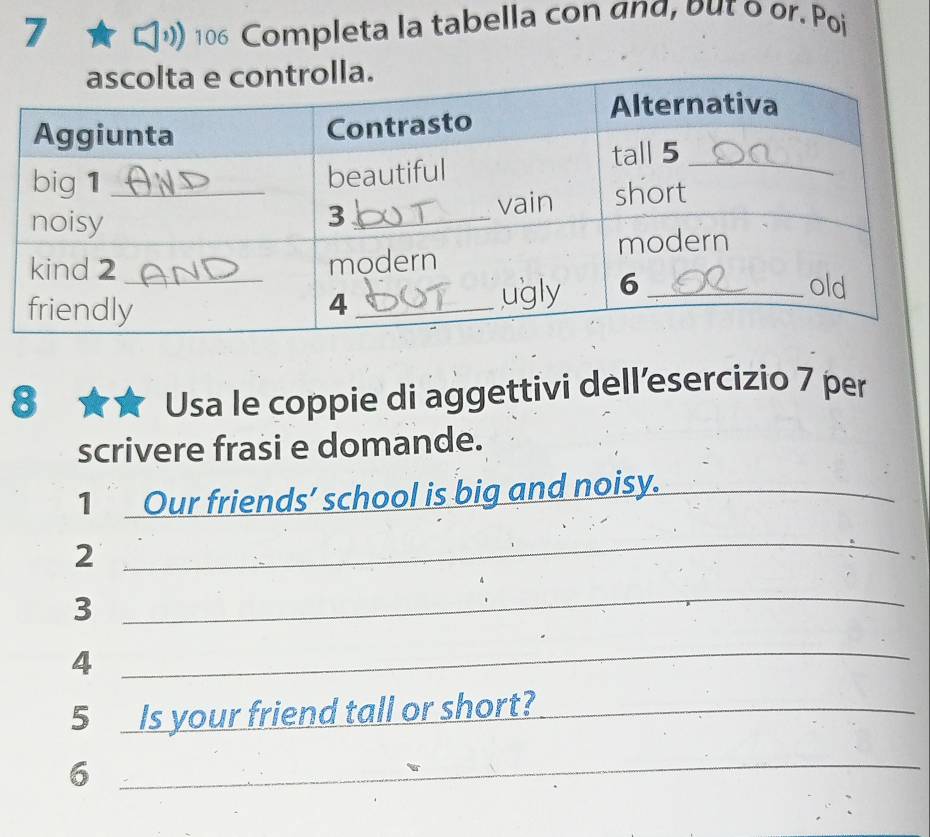 7 ★ 106 Completa la tabella con and, but o or. Poi
ascolta e controlla.
Aggiunta Contrasto Alternativa
big 1 AND beautiful tall 5 OR
noisy 3 BUT vain short
kind 2 AND modern modern
friendly 4 BUT ugly 6 OR old
8 ★★ Usa le coppie di aggettivi dell’esercizio 7 per
scrivere frasi e domande.
1 Our friends’ school is big and noisy.
2
3
4
5 Is your friend tall or short?
6